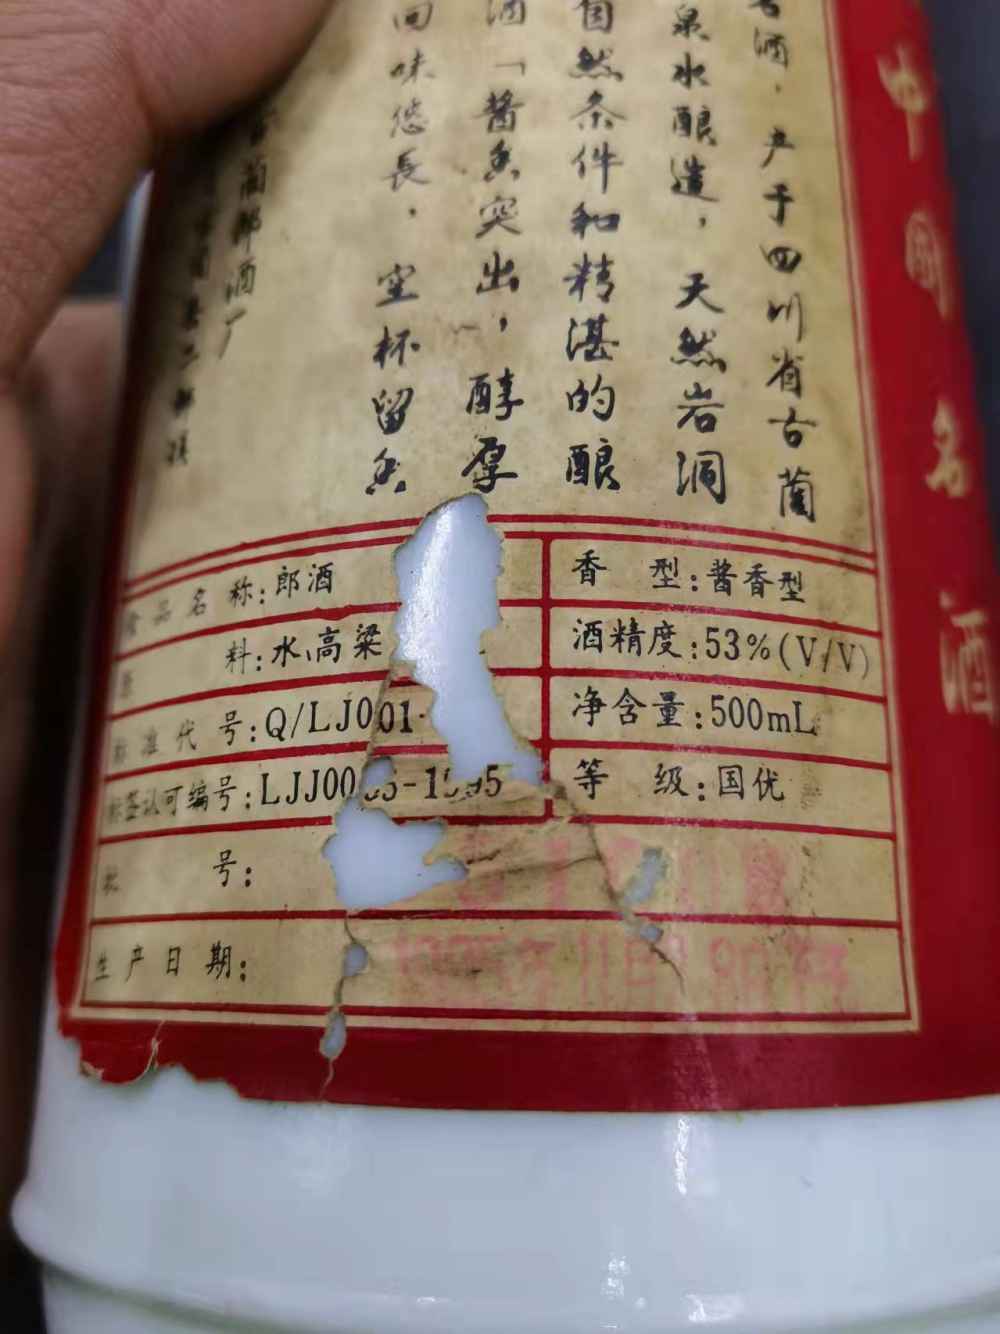 名酒，产于四川省古蔺
泉水酿造，天然岩洞
自然条件和精湛的酿
酒「酱香突出，醇厚
回味悠長，空杯留香
古蔺郎酒厂
二郎镇
中国名酒
食品名称:郎酒
香型:酱香型
料:水、高粱
酒精度:53%(V/V)
标准代号:Q/LJ001
净含量:500mL
标签认可编号:LJJ00
等级:国优
批号:
生产日期: